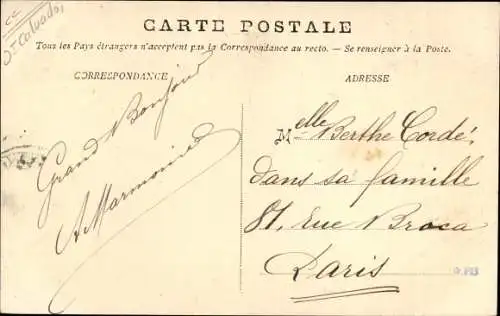 CARTE POSTALE
Tous les Pays étrangers n'acceptent pas la Correspondance au recto. — Se renseigner à la Poste.
CORRESPONDANCE
ADRESSE
Grand Bonjour
Melle Berthe Cordé,
dans sa famille
81, rue Broca
Paris